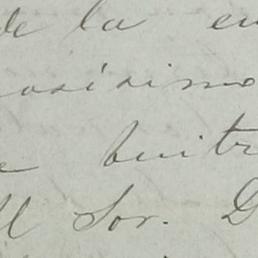 de la en
osísimo
e buitr
el Sor. D